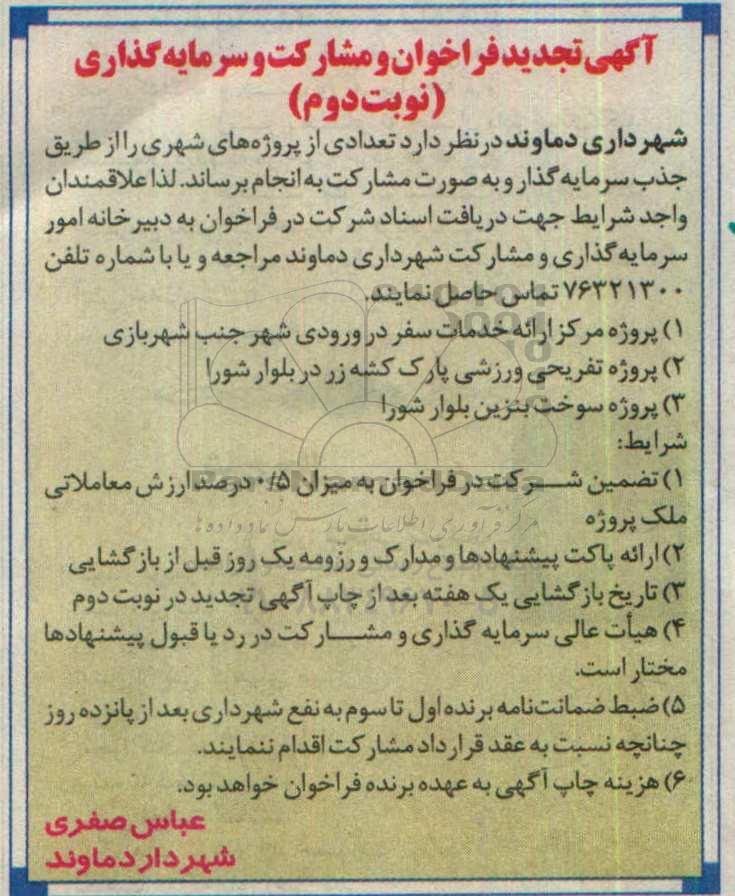 آگهی تجدید فراخوان و مشارکت و سرمایه گذاری
(نوبت دوم)
شهرداری دماوند در نظر دارد تعدادی از پروژه‌های شهری را از طریق
جذب سرمایه گذار و به صورت مشارکت به انجام برساند. لذا علاقمندان
واجد شرایط جهت دریافت اسناد شرکت در فراخوان به دبیرخانه امور
سرمایه گذاری و مشارکت شهرداری دماوند مراجعه و یا با شماره تلفن
۷۶۳۲۱۳۰۰ تماس حاصل نمایند.
۱) پروژه مرکز ارائه خدمات سفر در ورودی شهر جنب شهربازی
۲) پروژه تفریحی ورزشی پارک کشه زر در بلوار شورا
۳) پروژه سوخت بنزین بلوار شورا
شرایط:
۱) تضمین شرکت در فراخوان به میزان ۰/۵ درصد ارزش معاملاتی
ملک پروژه
مرکز فرآوری اطلاعات پارس نماد داده ها
۲) ارائه پاکت پیشنهادها و مدارک و رزومه یک روز قبل از بازگشایی
۳) تاریخ بازگشایی یک هفته بعد از چاپ آگهی تجدید در نوبت دوم
۴) هیأت عالی سرمایه گذاری و مشارکت در رد یا قبول پیشنهادها
مختار است.
۵) ضبط ضمانت‌نامه برنده اول تا سوم به نفع شهرداری بعد از پانزده روز
چنانچه نسبت به عقد قرارداد مشارکت اقدام ننمایند.
۶) هزینه چاپ آگهی به عهده برنده فراخوان خواهد بود.
عباس صفری
شهردار دماوند